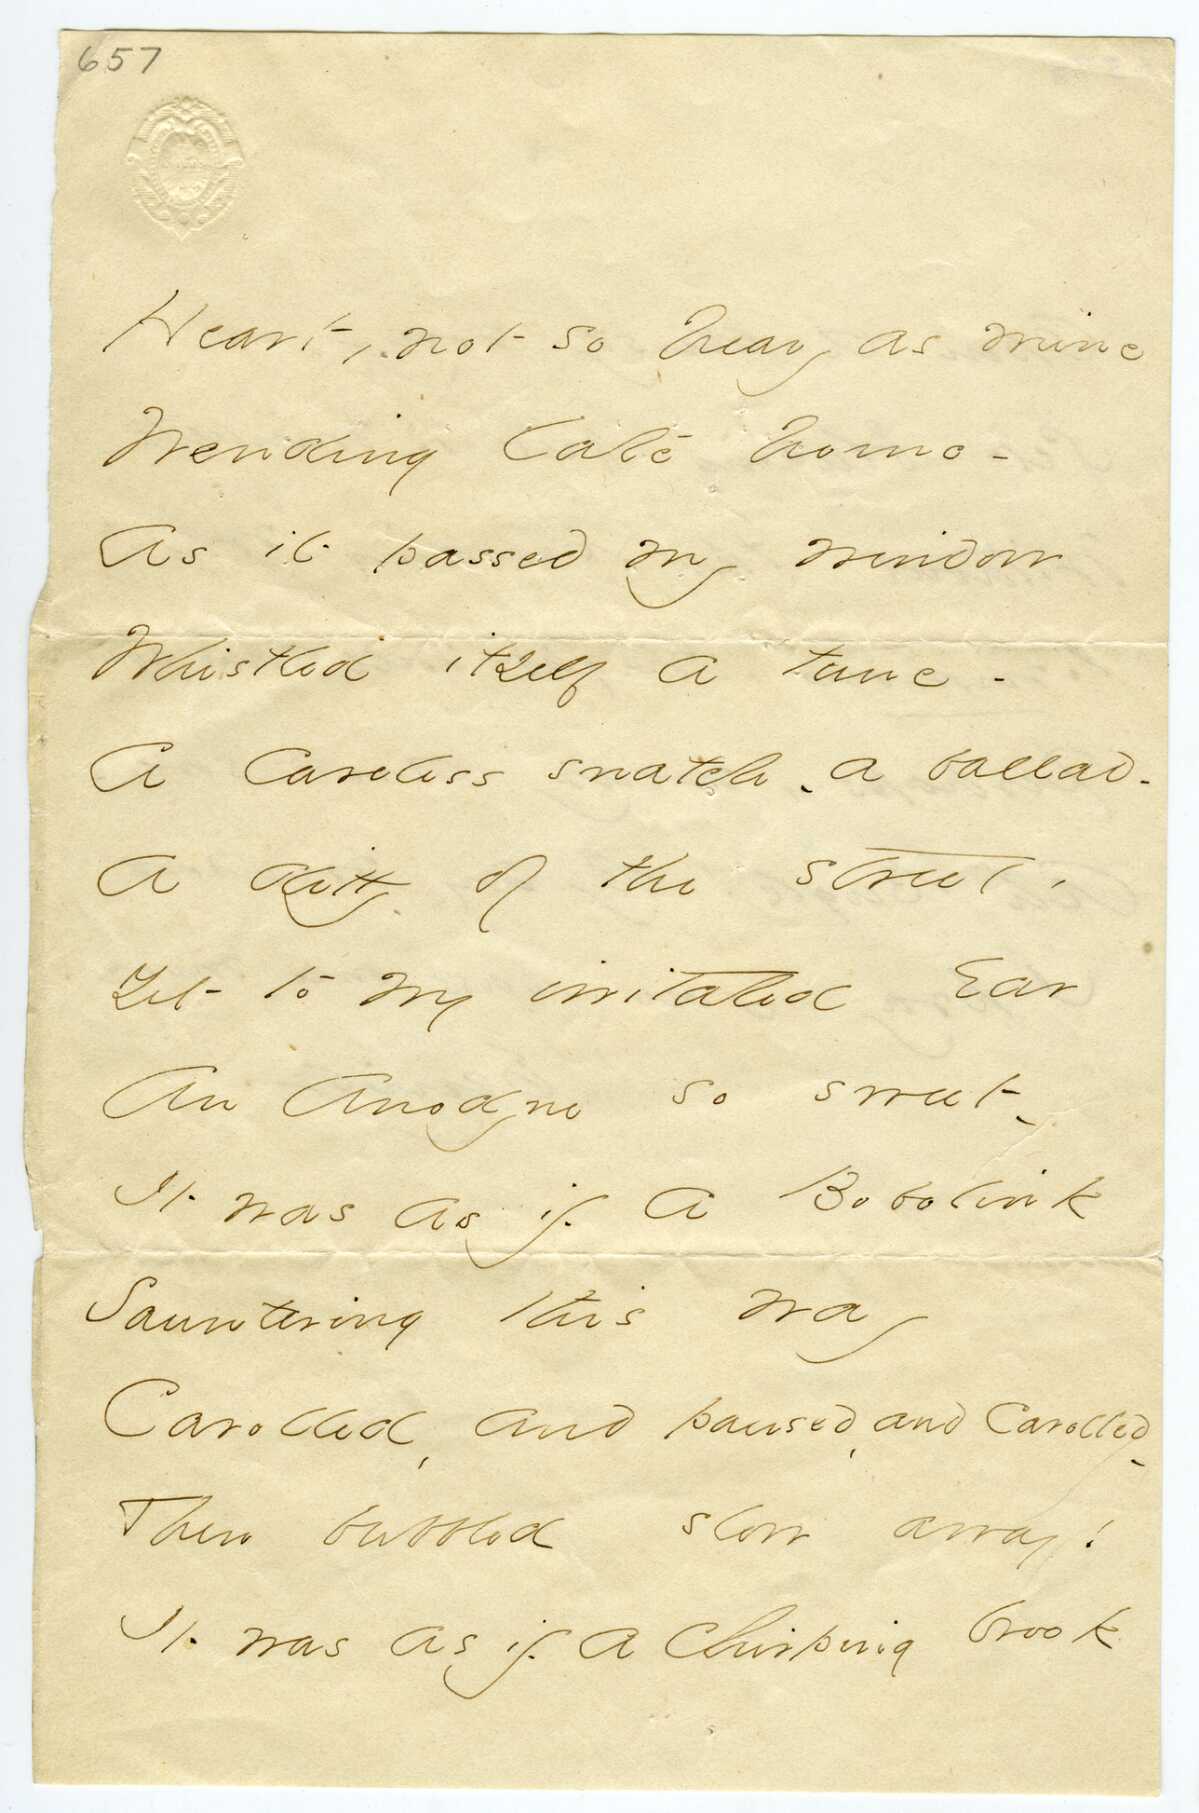 657
Heart, not so heavy as mine
Wending late home -
As it passed my window
Whistled itself a tune -
A careless snatch - a ballad -
A ditty of the street -
Yet to my irritated Ear
An Anodyne so sweet -
It was as if a Bobolink
Sauntering this way
Carolled, and paused, and Carolled -
Then bubbled slow away!
It was as if a chirping brook